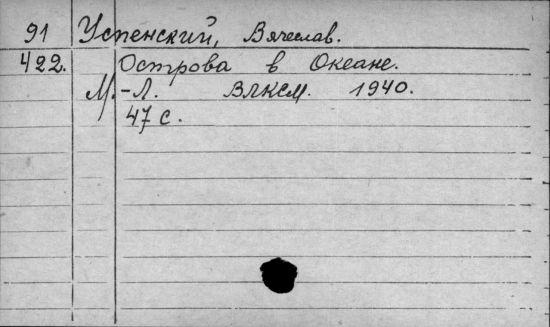 91 Успенский, Вячеслав.
422. Острова в Океане.
М.-Л. ВЛКСМ. 1940.
47 с.